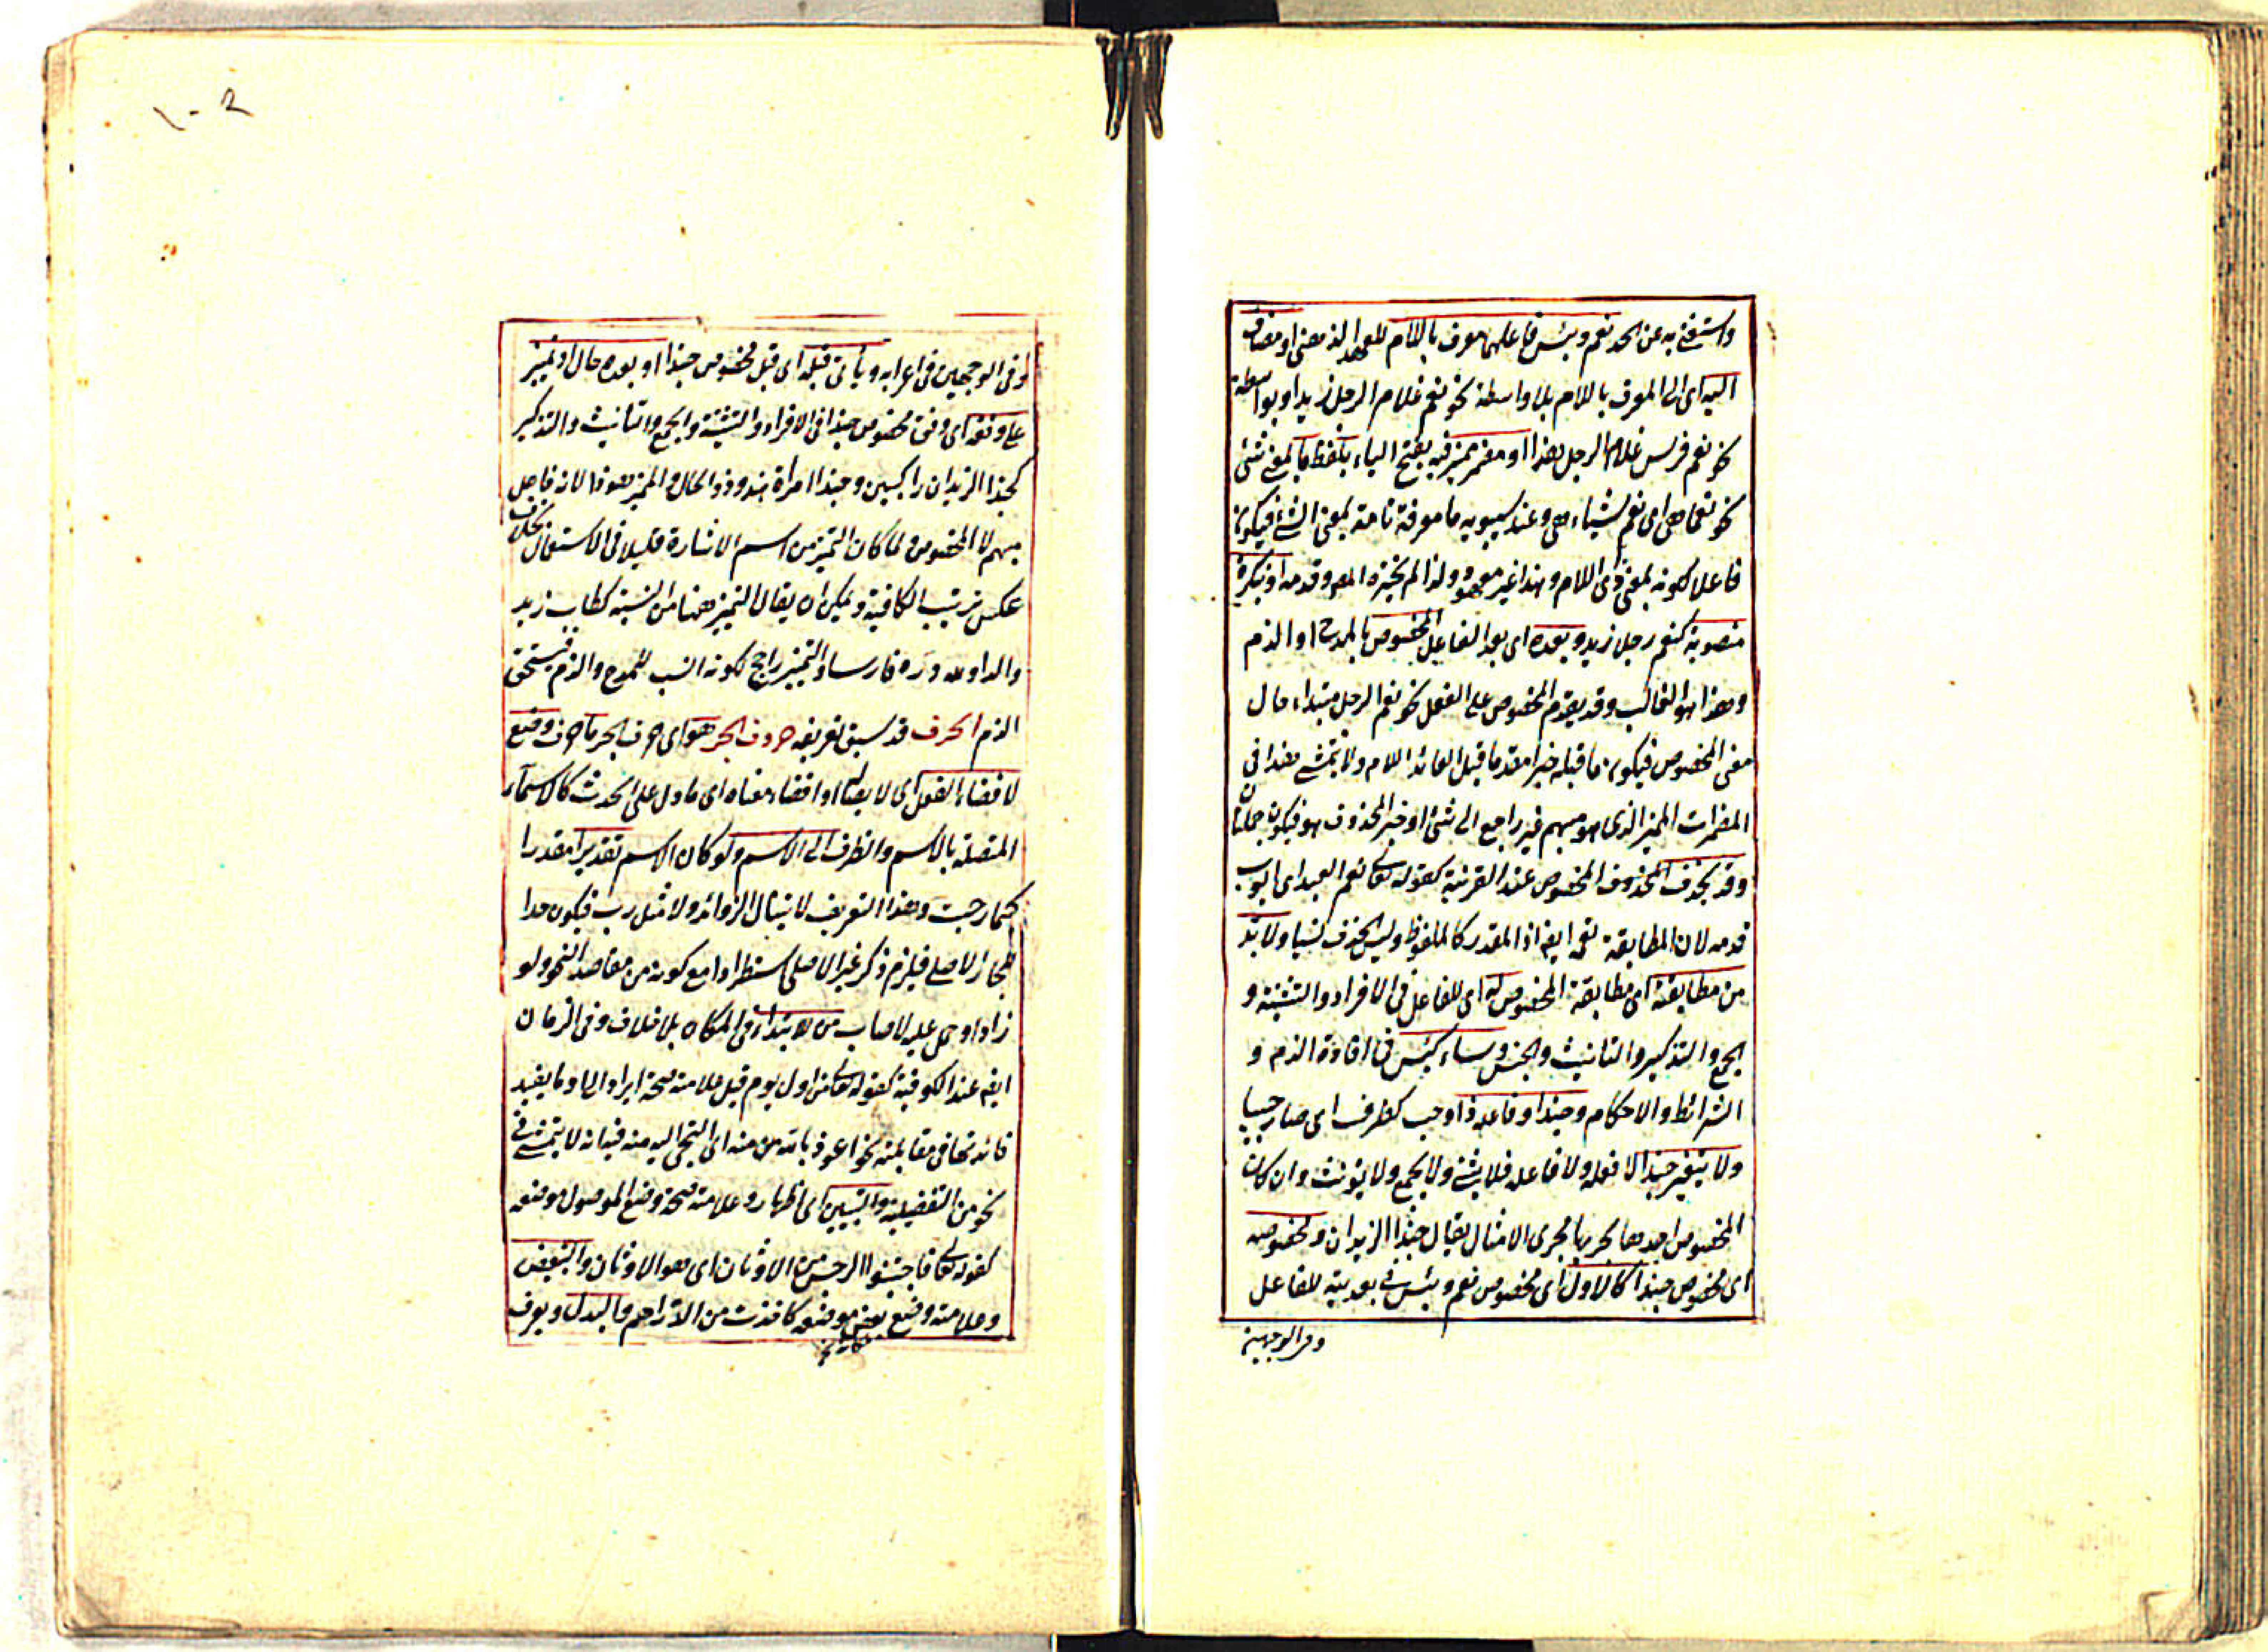 واستغنى به عن الحد نعم وبئس فاعلهما معرف باللام للعهد الذهني او مضاف
اليه اى الى المعرف باللام بلا واسطة نحو نعم غلام الرجل زيد او بواسطة
نحو نعم فرس غلام الرجل هذا او مضمر مميز فيه بفتح الياء بلفظ ما بمعنى شئ
نحو نعما هى اى نعم شياء هى وعند سيبويه ما معرفة تامة بمعنى الشئ فيكون
فاعلا لكونه بمعنى ذى اللام وهذا غير معهود ولذا لم يختره المص وقدمه او بنكرة
منصوبة كنعم رجلا زيد وبعده اى بعد الفاعل المخصوص بالمدح او الذم
وهذا هو الغالب وقد يقدم المخصوص على الفعل نحو نعم الرجل مبتداء حال
معنى المخصوص فيكون ما قبله خبرا مقدما قبل العائد اللام ولا يتمشى هذا فى
المضمرات المميز الذى هو مبهم غير راجع الى شئ او خبر المحذوف هو فيكون جملتان
وقد يحذف المحذوف المخصوص عند القرنية كقوله تعالى نعم العبد اى ايوب
قدمه لان المطابقة تعم ايض اذ المقدر كالملفوظ وليس الحذف نسيا ولا بد
من مطابقته اى مطابقة المخصوص له اى للفاعل فى الافراد والتثنية و
الجمع والتذكير والتانيث والجنس وساء كبئس فى افادة الذم و
الشرائط والاحكام وحبذا وفاعله ذا وحب كظرف اى صار حبيبا
ولا يتغير حبذا لا فعله ولا فاعله فلا يثنى ولا يجمع ولا يؤنث وان كان
المخصوص احدها لجريها مجرى الامثال يقال حبذا الزيدان ومخصوصه
اى مخصوص حبذا كالاول اى مخصوص نعم وبئس فى بعديته للفاعل
وفى الوجهين
وفى الوجهين فى اعرابه ويأتى قبله اى قبل مخصوص حبذا او بعده حال او تمييز
على وفقه اى وفق مخصوص حبذا فى الافراد والتثنية والجمع والتانيث والتذكير
كحبذا الزيدان راكبين وحبذا امراة هند وذو الحال والمميز هو ذا لانه فاعل
مبهم لا المخصوص ولما كان التمييز من اسم الاشارة قليلا فى الاستعمال بخلاف
عكس ترتيب الكافية ويمكن ان يقال التمييز ههنا من النسبة كطاب زيد
والدا ولله دره فارسا والتمييز راجح لكونه انسب للمدح والذم فيستحق
الذم الحرف قد سبق تعريفه حروف الجر هو اى حرف الجر ما حرف وضع
لافضاء الفعل اى لايصاله او افضاء معناه اى ما دل على الحدث كالاسماء
المتصلة بالاسم والظرف الى الاسم ولو كان الاسم تقديرا مقدرا
كما رحبت وهذا التعريف لا يتناول الزوائد ولا مثل رب فيكون حدا
للجار الاصلى فيلزم ذكر غير الاصلى استطرادا مع كونه من مقاصد النحو ولو
زاد او حمل عليه لاصاب من للابتداء فى المكان بلا خلاف وفى الزمان
ايض عند الكوفية كقوله تعالى من اول يوم قيل علامته صحة ايراد الى او ما يفيد
فائدتها فى مقابلته نحو اعوذ بالله من منه اى التجى اليه منه فيه انه لا يتمشى فى
نحو من التفضيلية والتبيين اى اظهار وعلامته صحة وضع الموصول موضعه
كقوله تعالى فاجتنبوا الرجس من الاوثان اى هو الاوثان والتبعيض
وعلامته وضع بعض موضعه كاخذت من الدراهم والبدل ويعرف